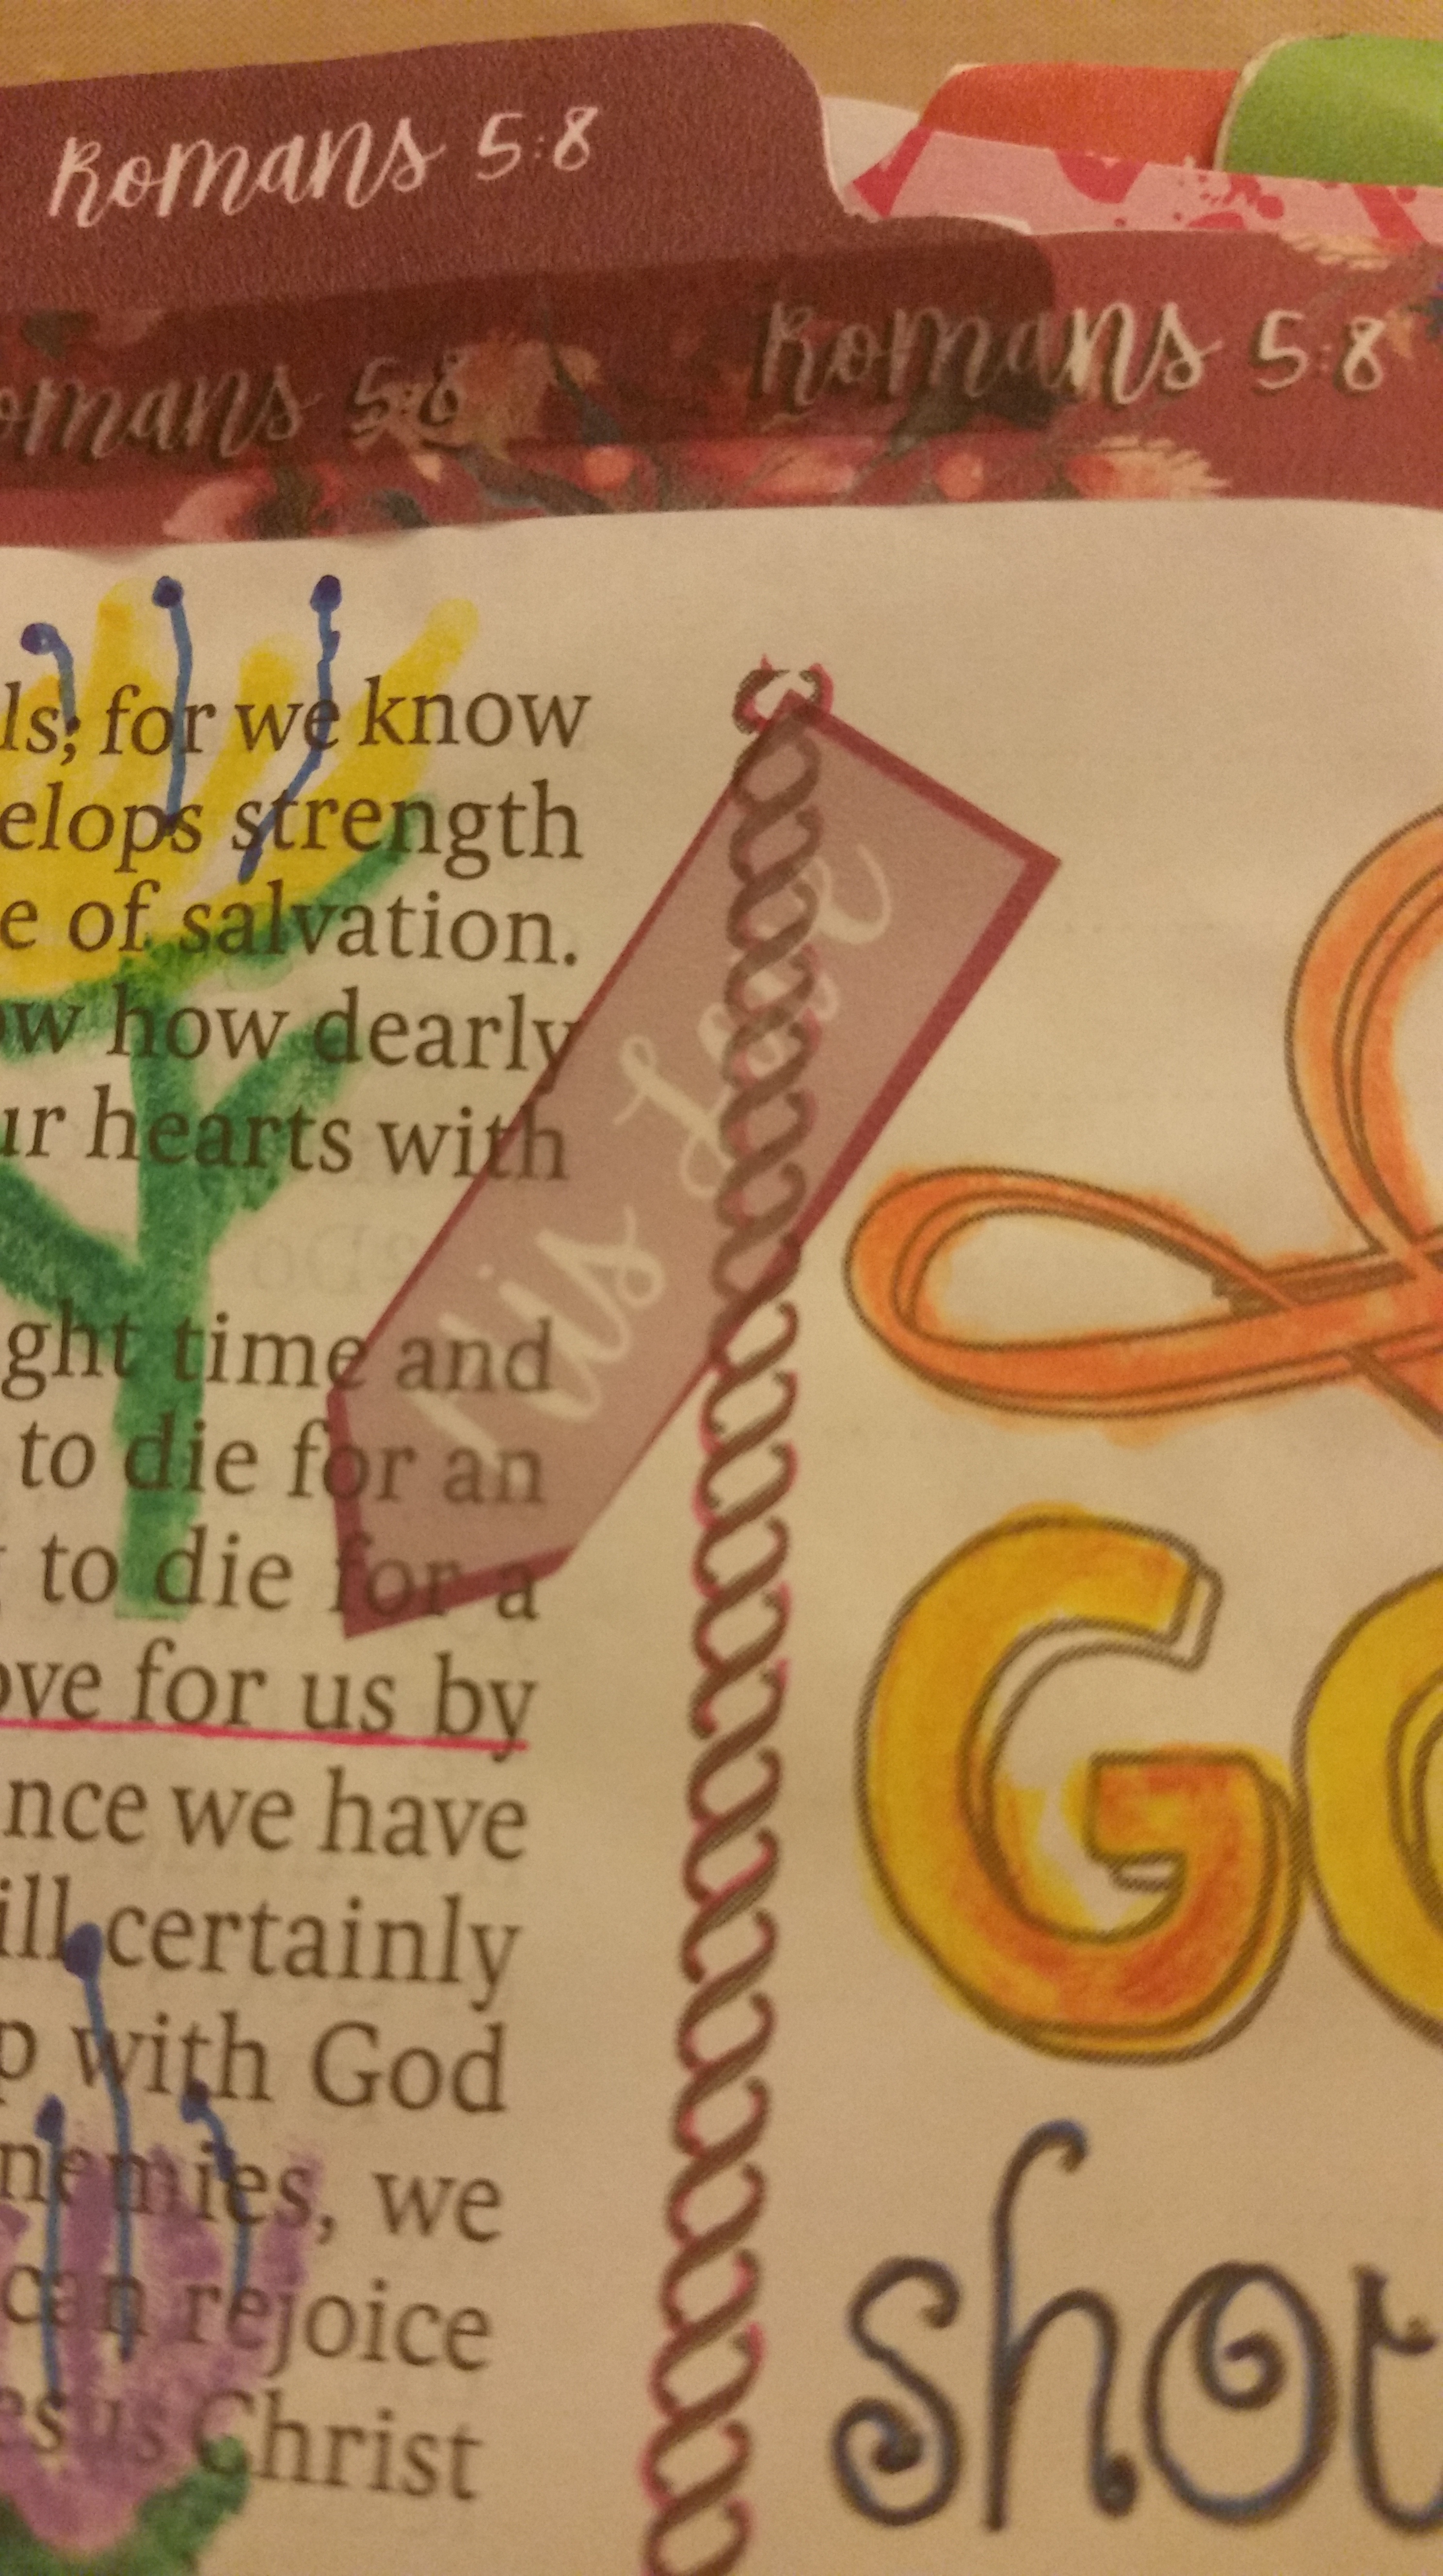 Romans 5:8
Romans 5:8
omans 5:8
ls; for we know
elops strength
e of salvation.
ow how dearly
ur hearts with
ght time and
to die for an
to die for a
ove for us by
nce we have
ill certainly
p with God
nemies, we
can rejoice
esus Christ
His Love
GO
shou